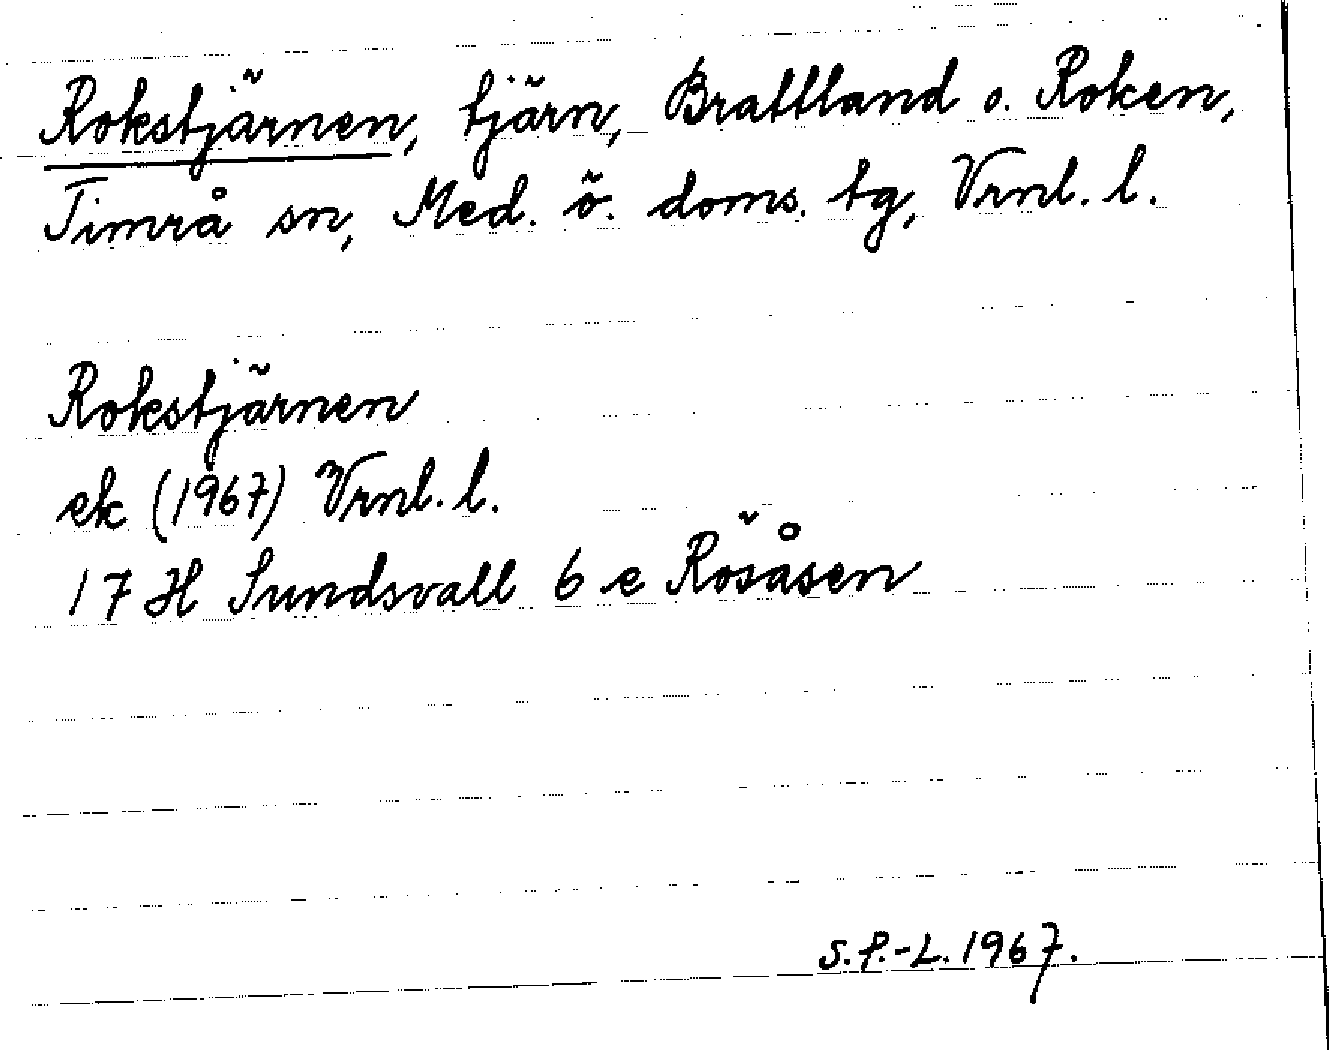 Rokstjärnen, tjärn, Brattland o. Roken,
Timrå sn, Med. ö. doms. tg, Vrnl. l.
Rokstjärnen
ek (1967) Vrnl. l.
17 H Sundsvall 6 e Rösåsen
S.P.-L. 1967.